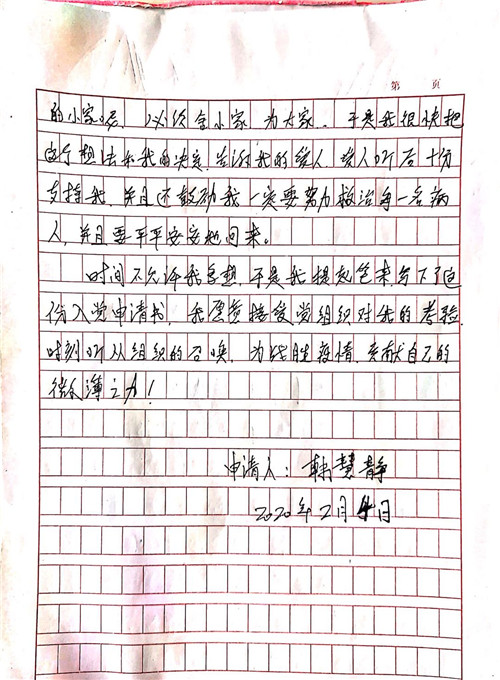 第 页
的小家呢，必须舍小家 为大家，于是我很快把
这个想法和我的决定，告诉我的爱人，爱人听后十分
支持我，并且还鼓励我一定要努力救治每一名病
人，并且要平平安安地回来。
时间不允许我多想，于是我提起笔来写下了这
份入党申请书，我愿意接受党组织对我的考验，
时刻听从组织的召唤，为战胜疫情，贡献自己的
微薄之力！
申请人：韩慧静
2020年2月4日